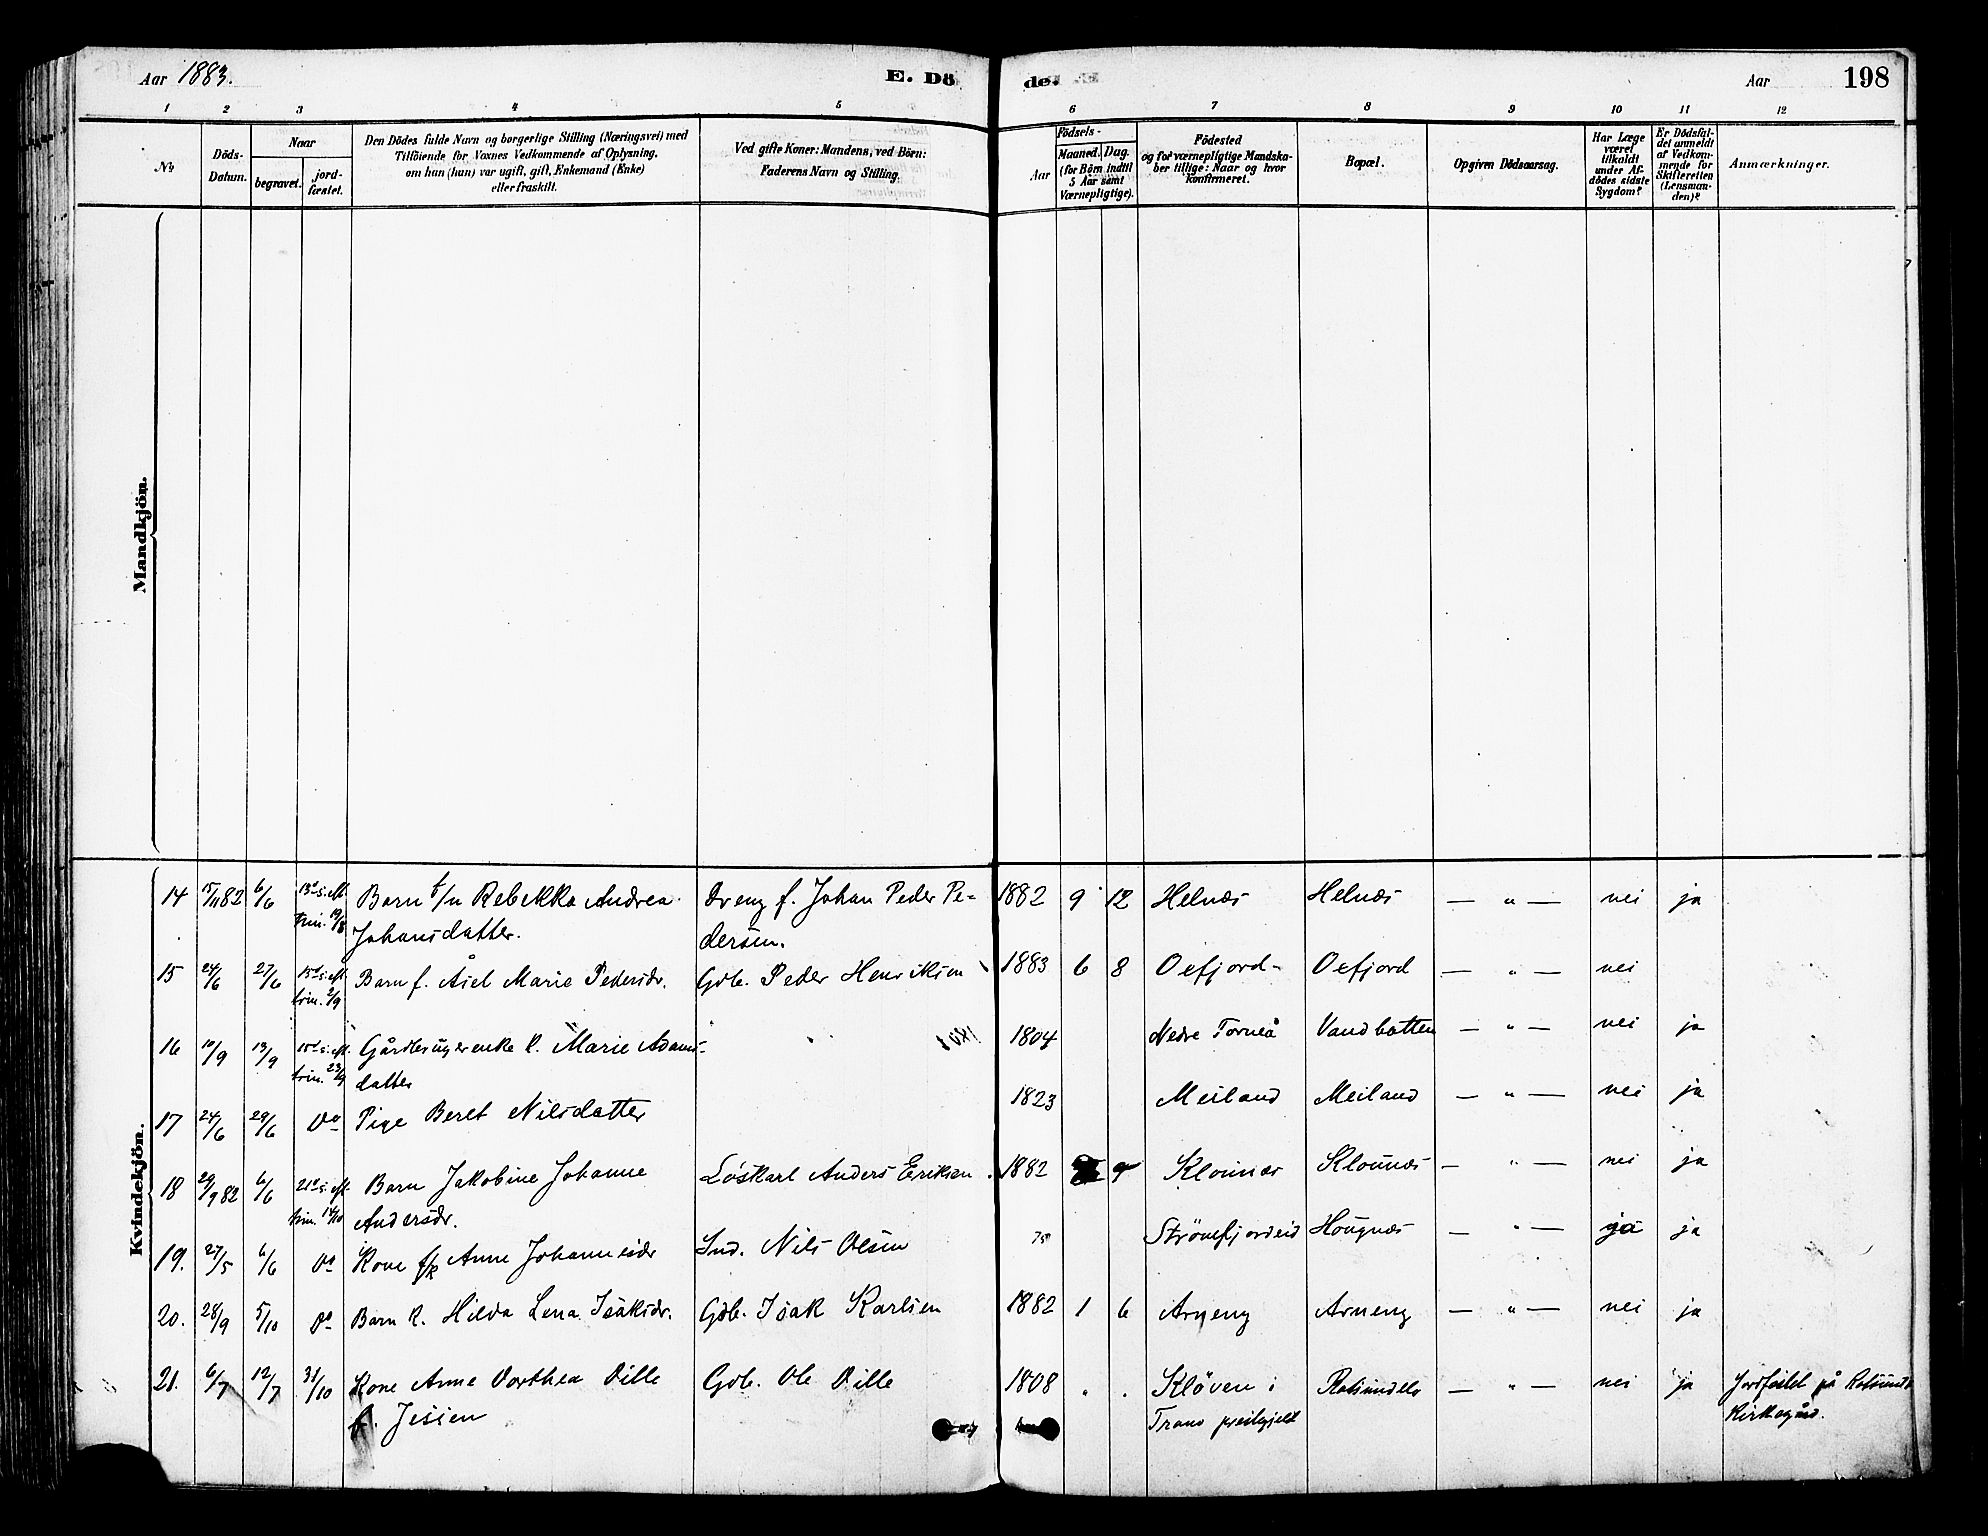 Aar 1883. E. Dö de. Aar 198
1 2 3 4 5 6 7 8 9 10 11 12
№ Döds-Datum. Naar begravet. jord-fæstet. Den Dödes fulde Navn og borgerlige Stilling (Næringsvei) med Tilföiende for Voxnes Vedkommende af Oplysning. om han (hun) var ugift, gift, Enkemand (Enke) eller fraskilt. Ved gifte Koner: Mandens, ved Börn: Faderens Navn og Stilling. Aar Födsels- Maaned. Dag. (for Börn indtil 5 Aar samt Værnepligtige). Födested og for værnepligtige Mandskaber tillige: Naar og hvor konfirmeret. Bopæl. Opgiven Dödsaarsag. Har Læge været tilkaldt under Afdödes sidste Sygdom? Er Dödsfaldet anmeldt af Vedkommende for Skifteretten (Lensmanden)? Anmærkninger.
Mandkjön.
Kvindekjön.
14 15/11 82 6/6 13d s. eft. Barn t/n Rebekka Andrea Dreng f. Johan Peder Pe- 1882 9 12 Helnæs Helnæs — " — nei ja
trin. 19/8 Johansdatter. dersen.
15 24/6 27/6 15d s. eft. Barn f. Åsel Marie Pedersdr. Gdb. Peder Henriksen 1883 6 8 Oefjord Oefjord — " — nei
trin. 2/9
16 10/9 13/9 18d s. eft. Gårdbrugerenke K. Marie Adams- 1804 Nedre Torneå Vandbatten — " — nei ja
trin. 23/9 datter
17 24/6 29/6 Do Pige Beret Nilsdatter 1823 Meiland Meiland — " — nei ja
18 29/9 82 6/6 21d s. eft. Barn Jakobine Johanne Löskarl Anders Eriksen. 1882 9 Klounæs Klounæs — " — nei ja
trin. 14/10 Andersdr.
19. 27/5 6/6 Do Kone f/k Anne Johannesdr Ind. Nils Olsen 75 Strömfjordeid Hougnæs — " — ja ja
20. 28/9 5/10 Do Barn K. Hilda Lena Isaksdr. Gdb. Isak Karlsen 1882 1 6 Arneng Arneng — " — nei ja
21. 6/7 12/7 31/10 Kone Anne Dorthea Dille Gdb. Ole Dille 1808 " . Klöven i Rotsundelv — " — nei ja Jordfæstet på Rotsunds
f. Jessen Tranö præstegjeld Kirkegård.